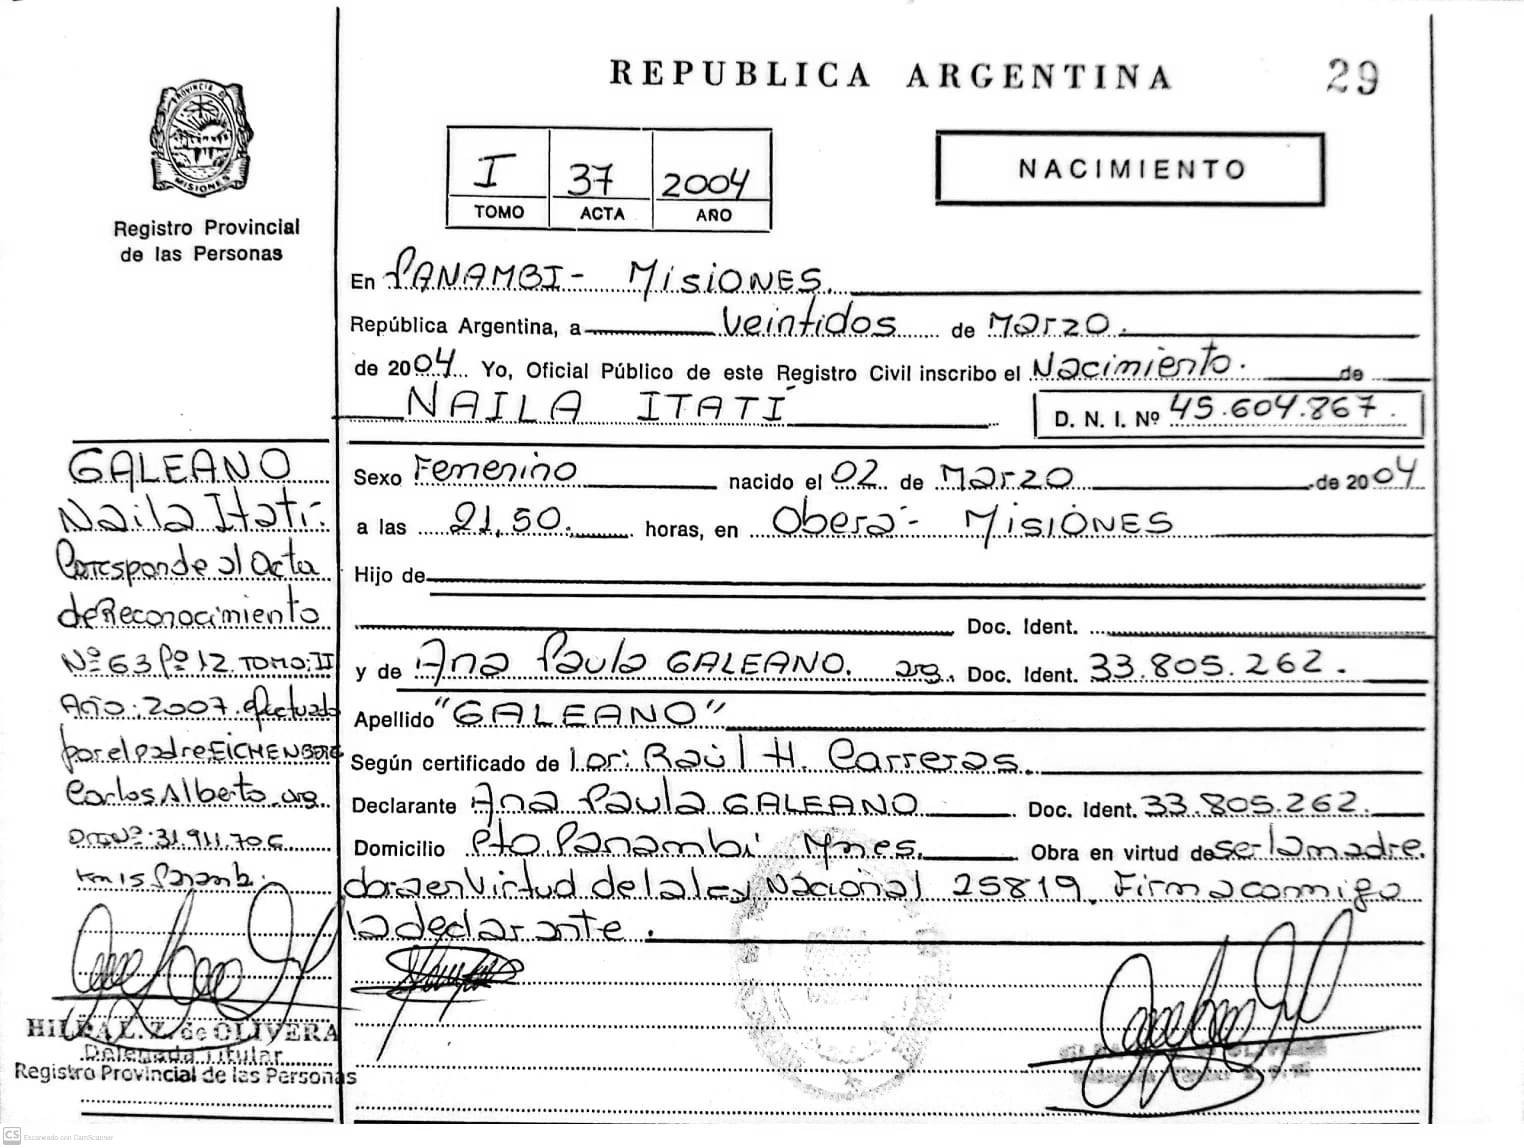 REPUBLICA ARGENTINA
29
PROVINCIA DE
MISIONES
Registro Provincial
de las Personas
I 37 2004
TOMO ACTA AÑO
NACIMIENTO
En PANAMBI- MISIONES.
República Argentina, a veintidos de Marzo.
de 2004 Yo, Oficial Público de este Registro Civil inscribo el Nacimiento. de
NAILA ITATÍ
D. N. I. Nº 45.604.867.
Sexo Femenino nacido el 02 de Marzo de 2004
a las 21,50. horas, en Oberá- MISIONES
Hijo de
Doc. Ident.
y de Ana Paula GALEANO. arg. Doc. Ident. 33.805.262.
Apellido "GALEANO"
Según certificado de Raúl H. Carreras.
Declarante Ana Paula GALEANO Doc. Ident. 33.805.262.
Domicilio Pto. Panambi Mnes. Obra en virtud de ser la madre.
en virtud de la ley Nacional 25819. Firma conmigo
la declarante.
GALEANO
Naila Itatí.
Corresponde al acta
de Reconocimiento
Nº 63 Fº 12. TOMO: II
Año: 2007. efectuado
por el padre EICHENBERG
Carlos Alberto. arg
31.911.706
Km 15 Panambi.
HILDA L. Z. de OLIVERA
Delegada Titular
Registro Provincial de las Personas
CS Escaneado con CamScanner